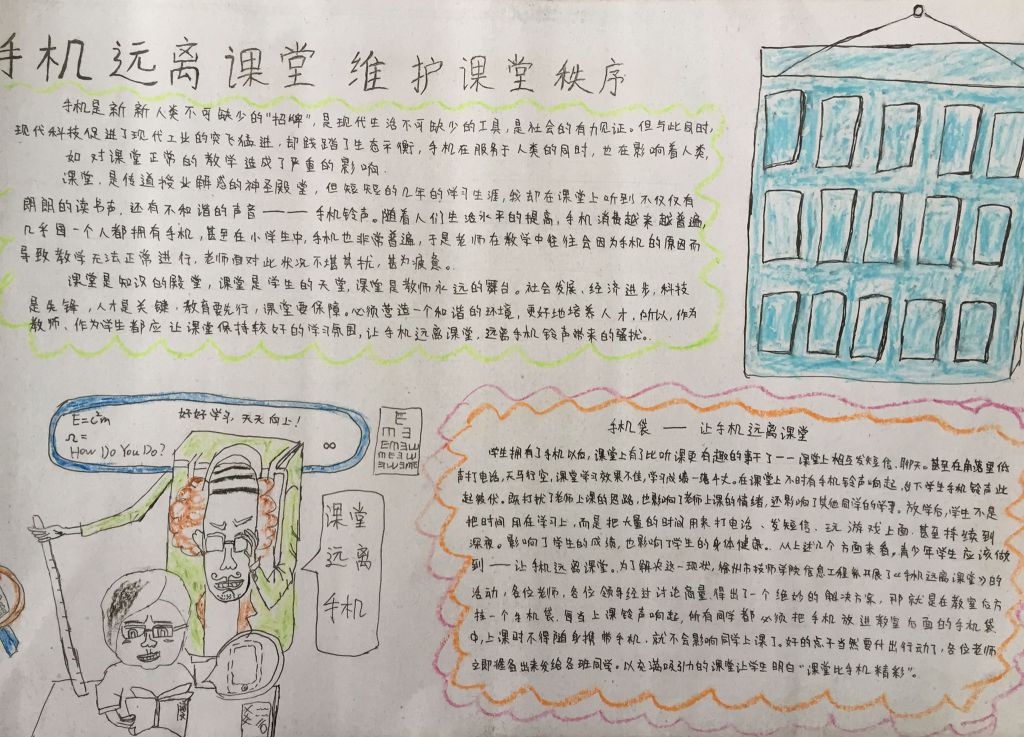 手机远离课堂 维护课堂秩序
手机是新新人类不可缺少的“招牌”，是现代生活不可缺少的工具，是社会的有力见证。但与此同时，
现代科技促进了现代工业的突飞猛进，却践踏了生态平衡，手机在服务于人类的同时，也在影响着人类，
如对课堂正常的教学造成了严重的影响。
课堂，是传道授业解惑的神圣殿堂，但短短的几年的学习生涯，我却在课堂上听到不仅仅有
朗朗的读书声，还有不和谐的声音———手机铃声。随着人们生活水平的提高，手机消费越来越普遍，
几乎每一个人都拥有手机，甚至在小学生中，手机也非常普遍，于是老师在教学中往往会因为手机的原因而
导致教学无法正常进行，老师面对此状况不堪其扰，甚为疲惫。
课堂是知识的殿堂，课堂是学生的天堂，课堂是教师永远的舞台。社会发展、经济进步，科技
是先锋，人才是关键，教育要先行，课堂要保障。必须营造一个和谐的环境，更好地培养人才，所以，作为
教师、作为学生都应让课堂保持较好的学习氛围，让手机远离课堂，远离手机铃声带来的骚扰。
E=c²m
好好学习，天天向上！
Ω=
∞
How Do YoU Do？
E
m ∃
课堂
远离
手机
手机袋 —— 让手机远离课堂
学生拥有了手机以后，课堂上有了比听课更有趣的事了——课堂上相互发短信、聊天。甚至在角落里低
声打电话，天马行空，课堂学习效果不佳，学习成绩一落千丈。在课堂上不时有手机铃声响起，台下学生手机铃声此
起彼伏。既打扰了老师上课的思路，也影响了老师上课的情绪，还影响了其他同学的学习。放学后，学生不是
把时间用在学习上，而是把大量的时间用来打电话、发短信、玩游戏上面，甚至持续到
深夜。影响了学生的成绩，也影响了学生的身体健康。从上述几个方面来看，青少年学生应该做
到——让手机远离课堂。为了解决这一现状，徐州市技师学院信息工程系开展了《手机远离课堂》的
活动，各位老师，各位领导经过讨论商量，得出了一个绝妙的解决方案，那就是在教室后方
挂一个手机袋，每当上课铃声响起，所有同学都必须把手机放进教室后面的手机袋
中，上课时不得随身携带手机，就不会影响同学上课了。好的点子当然要付出行动了，各位老师
立即准备出来发给各班同学。以充满吸引力的课堂让学生明白“课堂比手机精彩”。